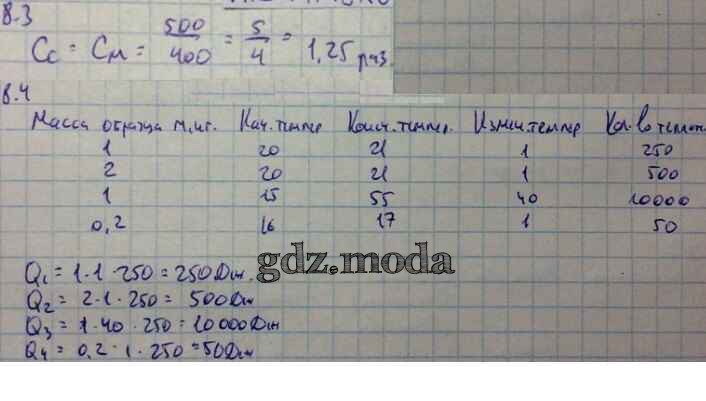 8.3
Cс = Cм = 500/400 = 5/4 = 1,25 раз.
8.4
Масса образца m, кг. Нач. темпер Конеч. темпер. Измен. темпер Кол-во теплот.
1 20 21 1 250
2 20 21 1 500
1 15 55 40 10000
0,2 16 17 1 50
gdz.moda
Q₁ = 1·1·250 = 250 Дж.
Q₂ = 2·1·250 = 500 Дж
Q₃ = 1·40·250 = 10000 Дж
Q₄ = 0,2·1·250 = 50 Дж